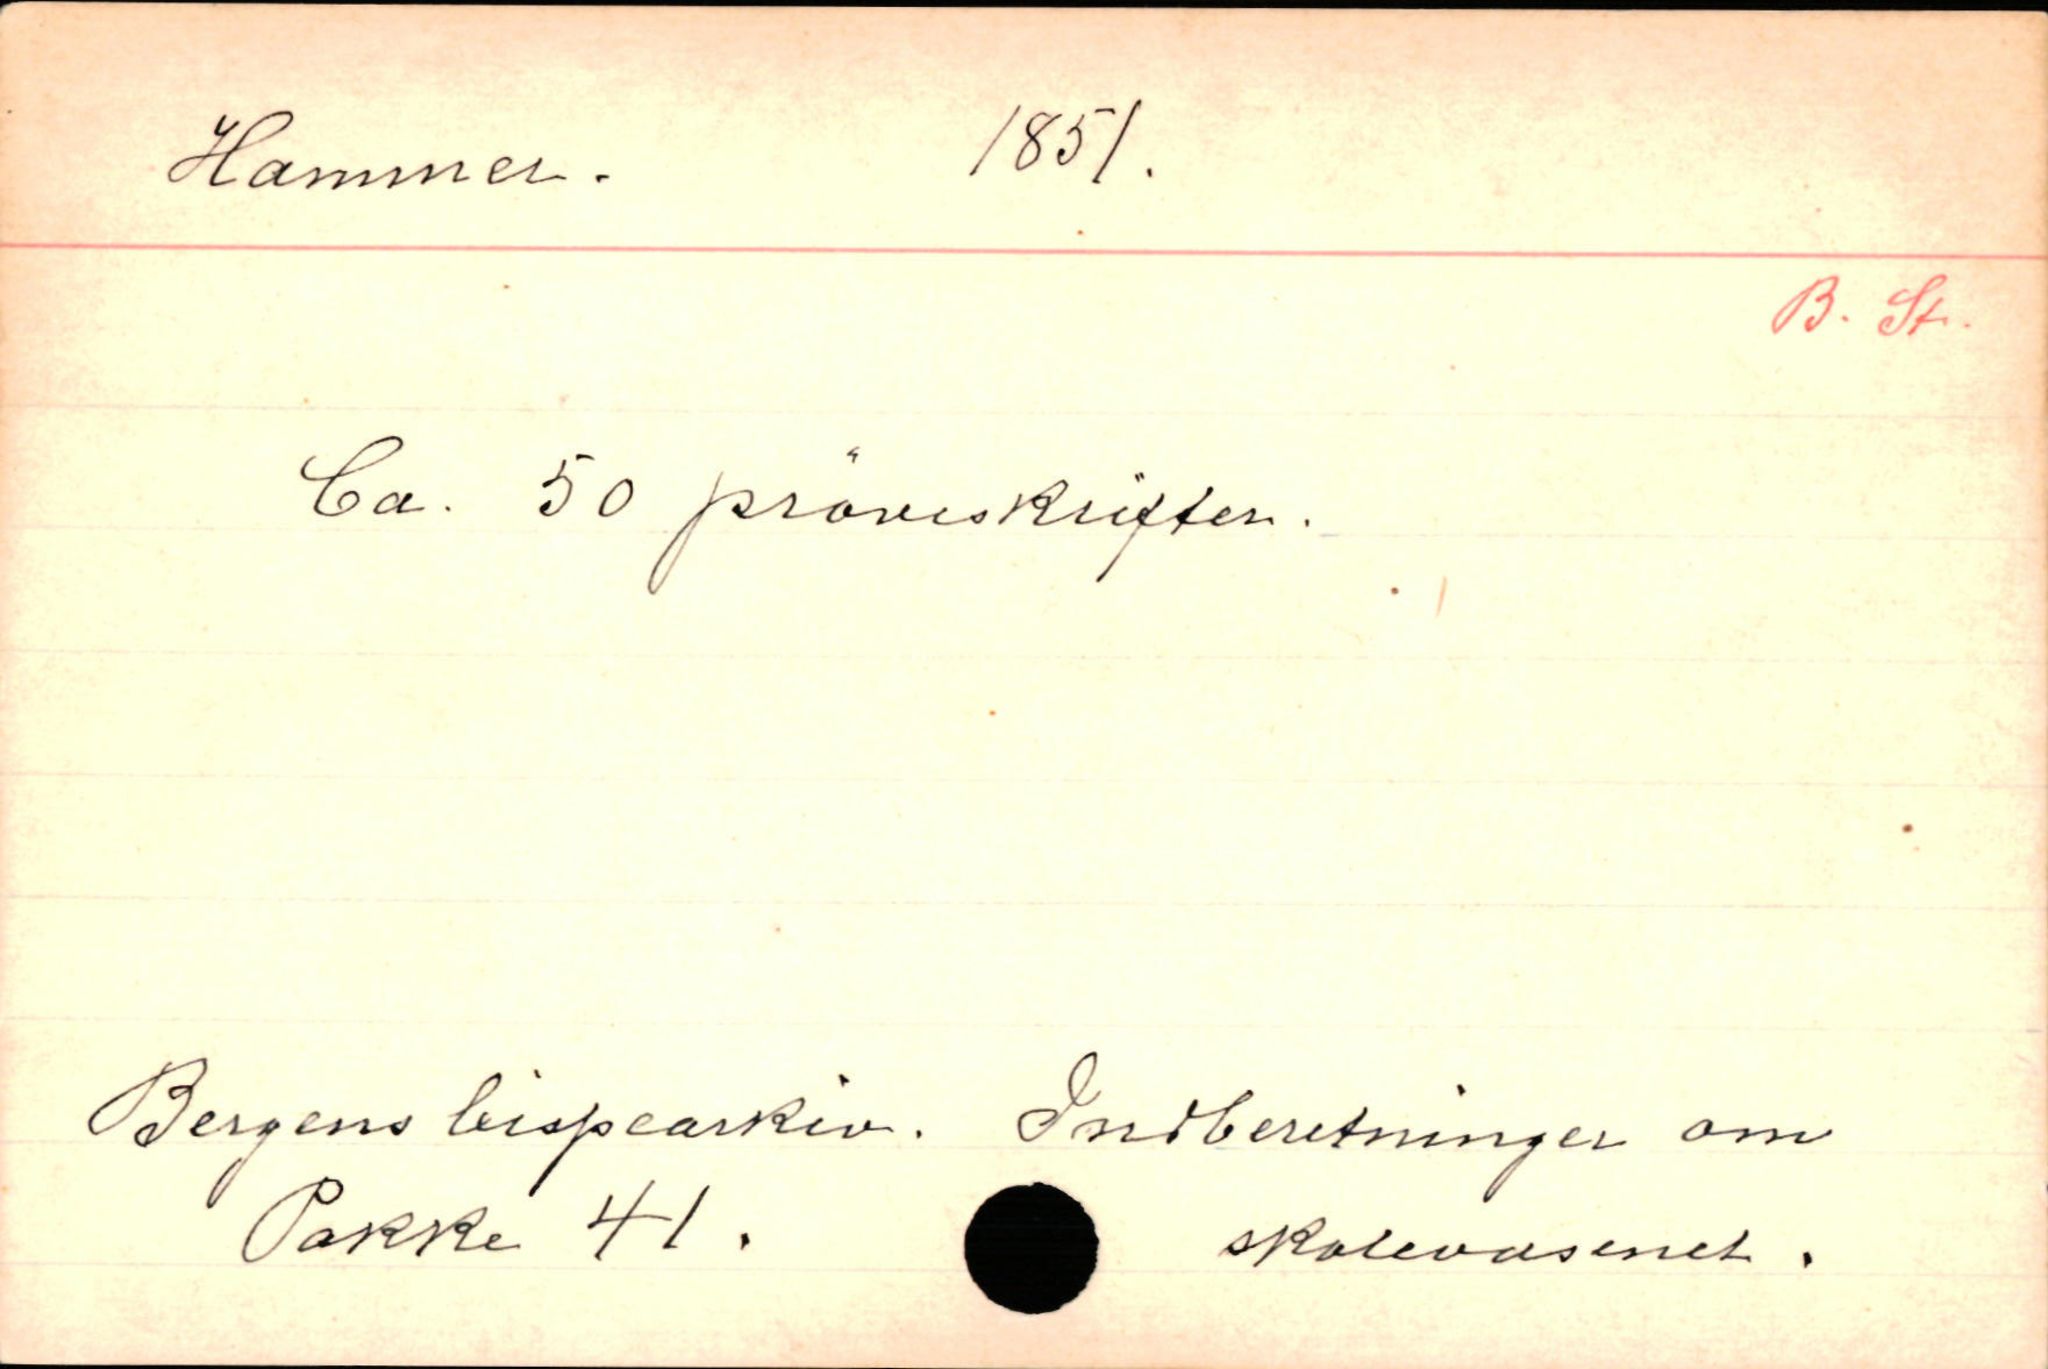 Hammer. 1851.
B. St.
Ca. 50 pröveskrifter.
Bergens bispearkiv. Indberetninger om
Pakke 41. skolevæsenet.